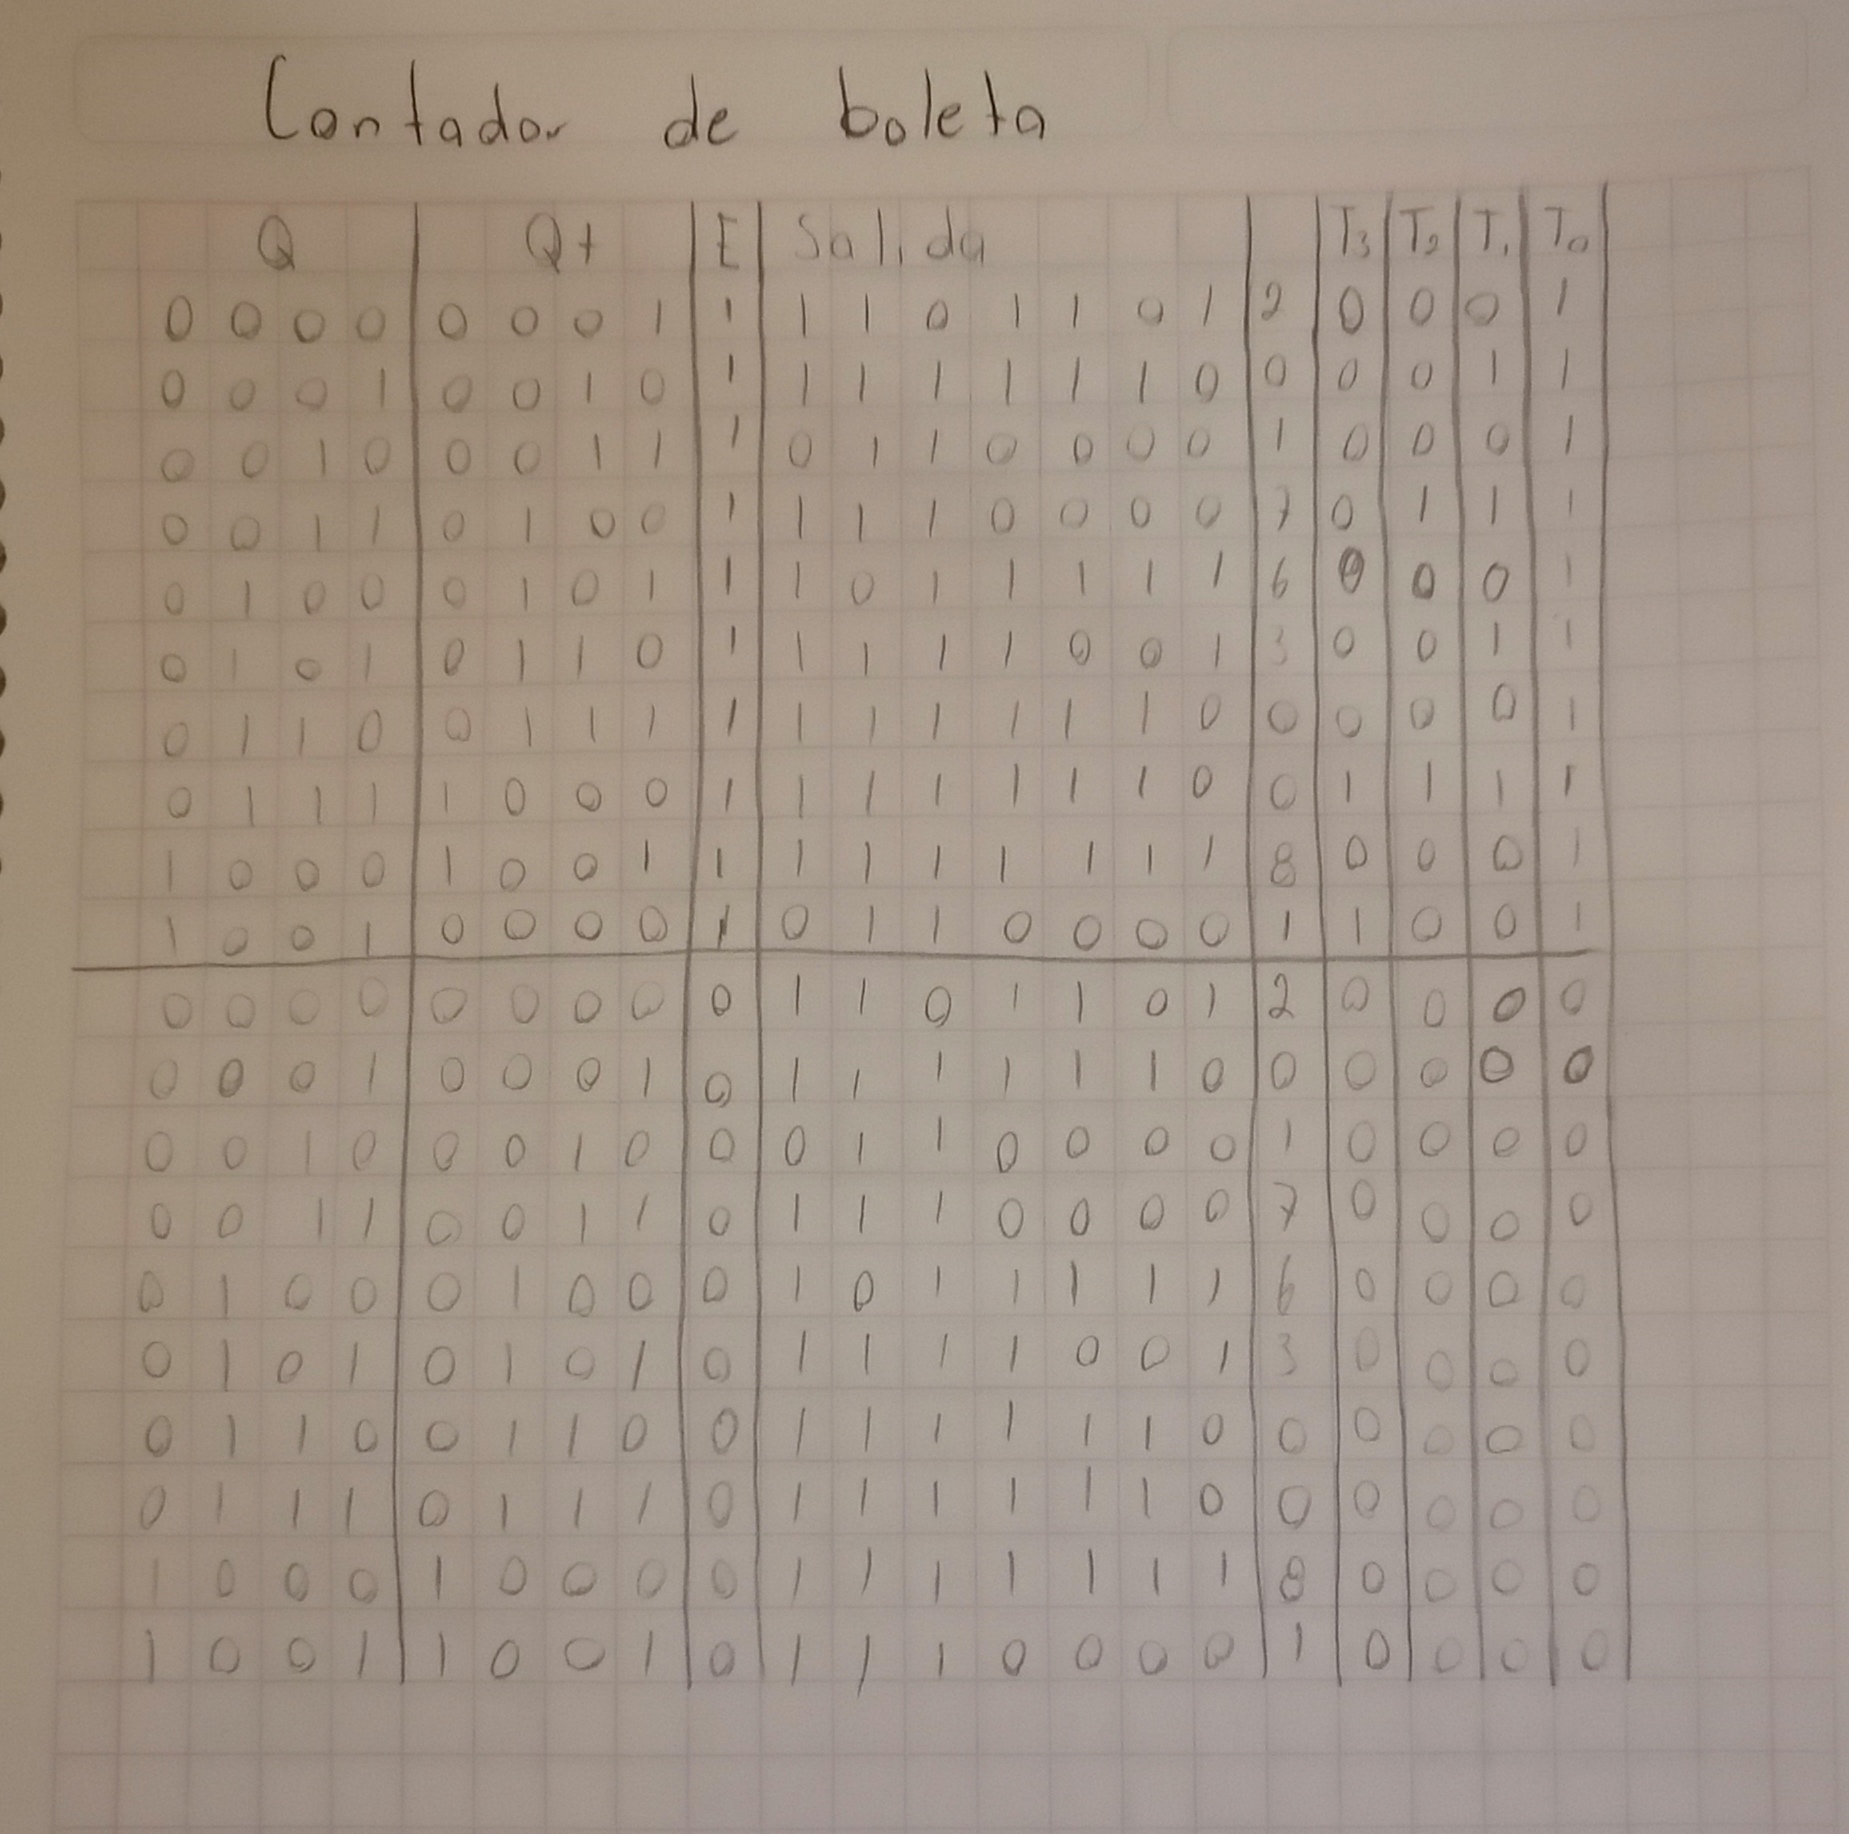 Contador de boleta
Q Q+ E Salida T3 T2 T1 T0
0 0 0 0 0 0 0 1 1 1 1 0 1 1 0 1 2 0 0 0 1
0 0 0 1 0 0 1 0 1 1 1 1 1 1 1 0 0 0 0 1 1
0 0 1 0 0 0 1 1 1 0 1 1 0 0 0 0 1 0 0 0 1
0 0 1 1 0 1 0 0 1 1 1 1 0 0 0 0 7 0 1 1 1
0 1 0 0 0 1 0 1 1 1 0 1 1 1 1 1 6 0 0 0 1
0 1 0 1 0 1 1 0 1 1 1 1 1 0 0 1 3 0 0 1 1
0 1 1 0 0 1 1 1 1 1 1 1 1 1 1 0 0 0 0 0 1
0 1 1 1 1 0 0 0 1 1 1 1 1 1 1 0 0 1 1 1 1
1 0 0 0 1 0 0 1 1 1 1 1 1 1 1 1 8 0 0 0 1
1 0 0 1 0 0 0 0 1 0 1 1 0 0 0 0 1 1 0 0 1
0 0 0 0 0 0 0 0 0 1 1 0 1 1 0 1 2 0 0 0 0
0 0 0 1 0 0 0 1 0 1 1 1 1 1 1 0 0 0 0 0 0
0 0 1 0 0 0 1 0 0 0 1 1 0 0 0 0 1 0 0 0 0
0 0 1 1 0 0 1 1 0 1 1 1 0 0 0 0 7 0 0 0 0
0 1 0 0 0 1 0 0 0 1 0 1 1 1 1 1 6 0 0 0 0
0 1 0 1 0 1 0 1 0 1 1 1 1 0 0 1 3 0 0 0 0
0 1 1 0 0 1 1 0 0 1 1 1 1 1 1 0 0 0 0 0 0
0 1 1 1 0 1 1 1 0 1 1 1 1 1 1 0 0 0 0 0 0
1 0 0 0 1 0 0 0 0 1 1 1 1 1 1 1 8 0 0 0 0
1 0 0 1 1 0 0 1 0 1 1 1 0 0 0 0 1 0 0 0 0